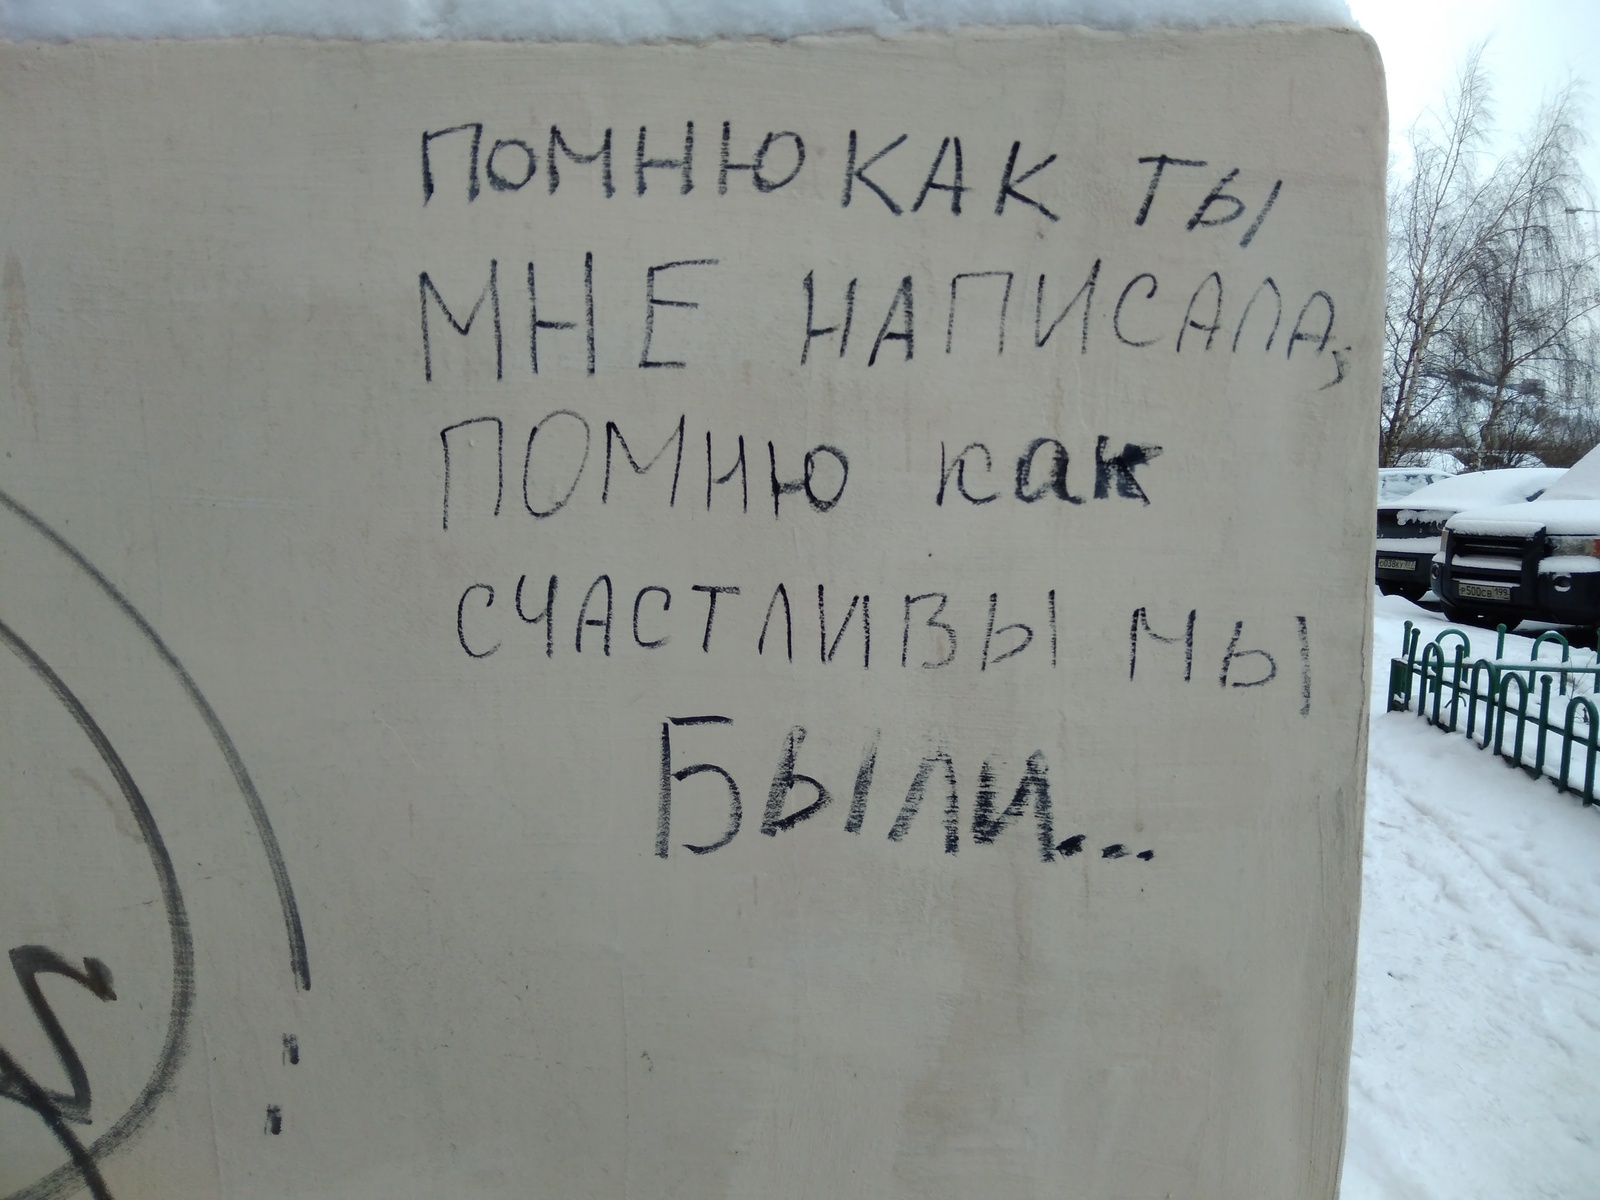 ПОМНЮ КАК ТЫ
МНЕ НАПИСАЛА,
ПОМНЮ как
СЧАСТЛИВЫ МЫ
БЫЛИ...
Р500СВ 199